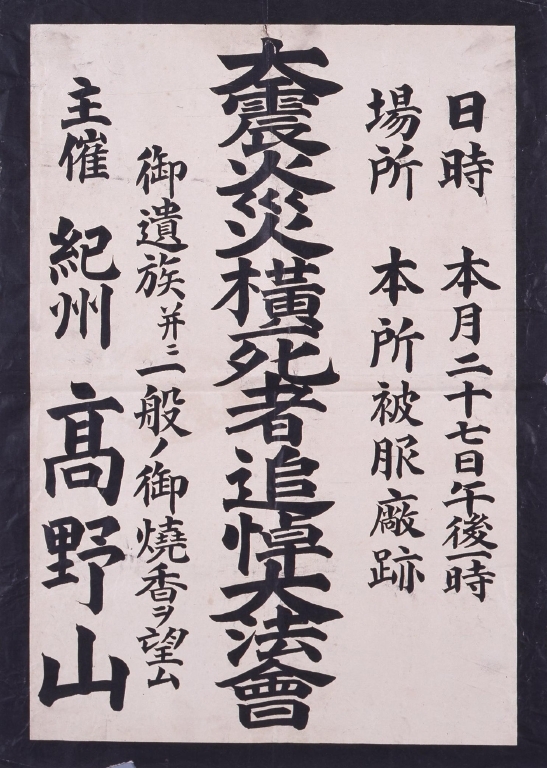 日時 本月二十七日午後一時
場所 本所被服廠跡
大震災横死者追悼大法會
御遺族并ニ一般ノ御燒香ヲ望ム
主催 紀州 高野山